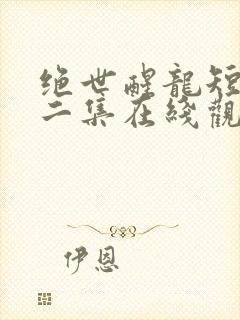 绝世醒龍短
二集在綫觀
伊恩